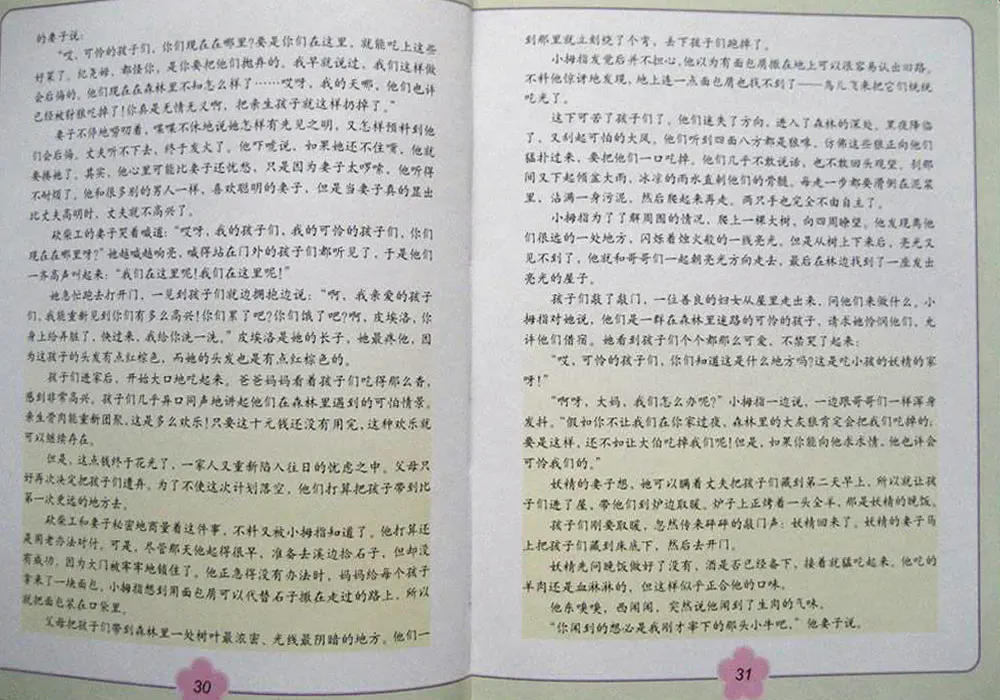 的妻子说：
“哎，可怜的孩子们，你们现在在哪里？要是你们在这里，就能吃上这些
好菜了。纪尧姆，都怪你，是你要把他们抛弃的。我早就说过，我们这样做
会后悔的。他们现在在森林里不知怎么样了……哎呀，我的天哪，他们也许
已经被豺狼吃掉了！你真是无情无义啊，把亲生孩子就这样扔掉了。”
妻子不停地唠叨着，喋喋不休地说她怎样有先见之明，又怎样预料到他
们会后悔。丈夫听不下去，终于发火了。他吓唬说，如果她还不住嘴，他就
要揍她了。其实，他心里可能比妻子还忧愁，只是因为妻子太啰嗦，他听得
不耐烦了。他和很多别的男人一样，喜欢聪明的妻子，但是当妻子真的显出
比丈夫高明时，丈夫就不高兴了。
砍柴工的妻子哭着喊道：“哎呀，我的孩子们，我的可怜的孩子们，你们
现在在哪里呀？”她越喊越响亮，喊得站在门外的孩子们都听见了，于是他们
一齐高声叫起来：“我们在这里呢！我们在这里呢！”
她急忙跑去打开门，一见到孩子们就边拥抱边说：“啊，我亲爱的孩子
们，我能重新见到你们有多么高兴！你们累了吧？你们饿了吧？啊，皮埃洛，你
身上给弄脏了，快过来，我给你洗一洗。”皮埃洛是她的长子，她最疼他，因
为这孩子的头发有点红棕色，而她的头发也是有点红棕色的。
孩子们进家后，开始大口地吃起来。爸爸妈妈看着孩子们吃得那么香，
感到非常高兴。孩子们几乎异口同声地讲起他们在森林里遇到的可怕情景。
亲生骨肉能重新团聚，这是多么欢乐！只要这十元钱还没有用完，这种欢乐就
可以继续存在。
但是，这点钱终于花光了，一家人又重新陷入往日的忧虑之中。父母只
好再次决定把孩子们遗弃。为了不使这次计划落空，他们打算把孩子带到比
第一次更远的地方去。
砍柴工和妻子秘密地商量着这件事，不料又被小拇指知道了。他打算还
是用老办法对付。可是，尽管那天他起得很早，准备去溪边拾石子，但却没
有成功，因为大门被牢牢地锁住了。他正急得没有办法时，妈妈给每个孩子
拿来了一块面包，小拇指想到用面包屑可以代替石子撒在走过的路上，所以
就把面包装在口袋里。
父母把孩子们带到森林里一处树叶最浓密、光线最阴暗的地方。他们一
30
到那里就立刻绕了个弯，丢下孩子们跑掉了。
小拇指发觉后并不担心，他以为有面包屑撒在地上可以很容易认出回路。
不料他惊讶地发现，地上连一点面包屑也找不到了——鸟儿飞来把它们统统
吃光了。
这下可苦了孩子们了。他们迷失了方向，进入了森林的深处。黑夜降临
了，又刮起可怕的大风。他们听到四面八方都是狼嗥，仿佛这些狼正向他们
猛扑过来，要把他们一口吃掉。他们几乎不敢说话，也不敢回头观望。刹那
间又下起倾盆大雨，冰凉的雨水直刺他们的骨髓。每走一步都要滑倒在泥浆
里，沾满一身污泥，然后爬起来再走。两只手也完全不由自主了。
小拇指为了了解周围的情况，爬上一棵大树，向四周瞭望。他发现离他
们很远的一处地方，闪烁着烛火般的一线亮光。但是从树上下来后，亮光又
见不到了，他就和哥哥们一起朝亮光方向走去，最后在林边找到了一座发出
亮光的屋子。
孩子们敲了敲门，一位善良的妇女从屋里走出来，问他们来做什么。小
拇指对她说，他们是一群在森林里迷路的可怜的孩子，请求她怜悯他们，允
许他们借宿。她看到孩子们个个都那么可爱，不禁哭了起来：
“哎，可怜的孩子们，你们知道这是什么地方吗？这是吃小孩的妖精的家
呀！”
“啊呀，大妈，我们怎么办呢？”小拇指一边说，一边跟哥哥们一样浑身
发抖。“假如你不让我们在你家过夜，森林里的大灰狼肯定会把我们吃掉的；
要是这样，还不如让大伯吃掉我们呢！但是，如果你能向他求求情，他也许会
可怜我们的。”
妖精的妻子想，她可以瞒着丈夫把孩子们藏到第二天早上，所以就让孩
子们进了屋，带他们到炉边取暖。炉子上正烤着一头全羊，那是妖精的晚饭。
孩子们刚要取暖，忽然传来砰砰的敲门声：妖精回来了。妖精的妻子马
上把孩子们藏到床底下，然后去开门。
妖精先问晚饭做好了没有，酒是否已经备下，接着就猛吃起来。他吃的
羊肉还是血淋淋的，但这样似乎正合他的口味。
他东嗅嗅，西闻闻，突然说他闻到了生肉的气味。
“你闻到的想必是我刚才宰下的那头小牛吧，”他妻子说。
31